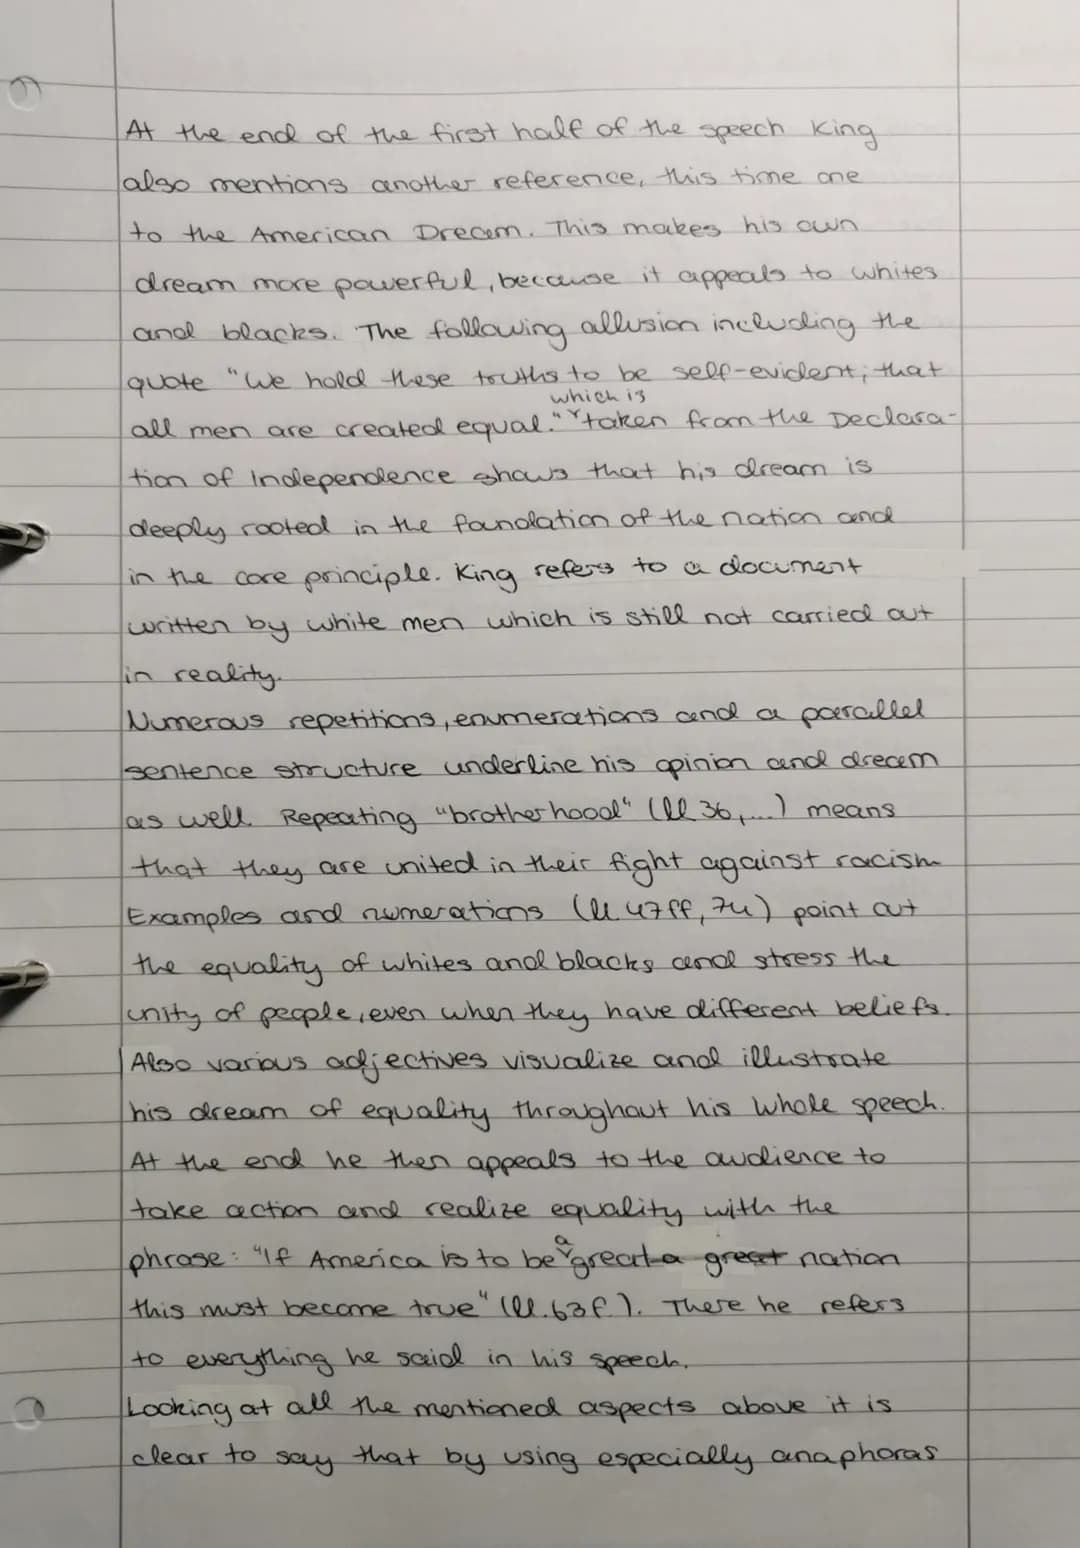 At the end of the first half of the speech King
also mentions another reference, this time one
to the American Dream. This makes his own
dream more powerful, because it appeals to whites
and blacks. The following allusion including the
quote "We hold these truths to be self-evident; that
which is
all men are created equal." taken from the Declara-
tion of Independence shows that his dream is
deeply rooted in the foundation of the nation and
in the core principle. King refers to a document
written by white men which is still not carried out
in reality.
Numerous repetitions, enumerations and a parallel
sentence structure underline his opinion and dream
as well. Repeating "brotherhood" (ll 36,...) means
that they are united in their fight against racism
Examples and numerations (ll. 47ff, 74) point out
the equality of whites and blacks and stress the
unity of people, even when they have different beliefs.
Also various adjectives visualize and illustrate
his dream of equality throughout his whole speech.
At the end he then appeals to the audience to
take action and realize equality with the
a
phrase: "If America is to be great a great nation
this must become true" (ll. 63f.). There he refers
to everything he said in his speech.
Looking at all the mentioned aspects above it is
clear to say that by using especially anaphoras